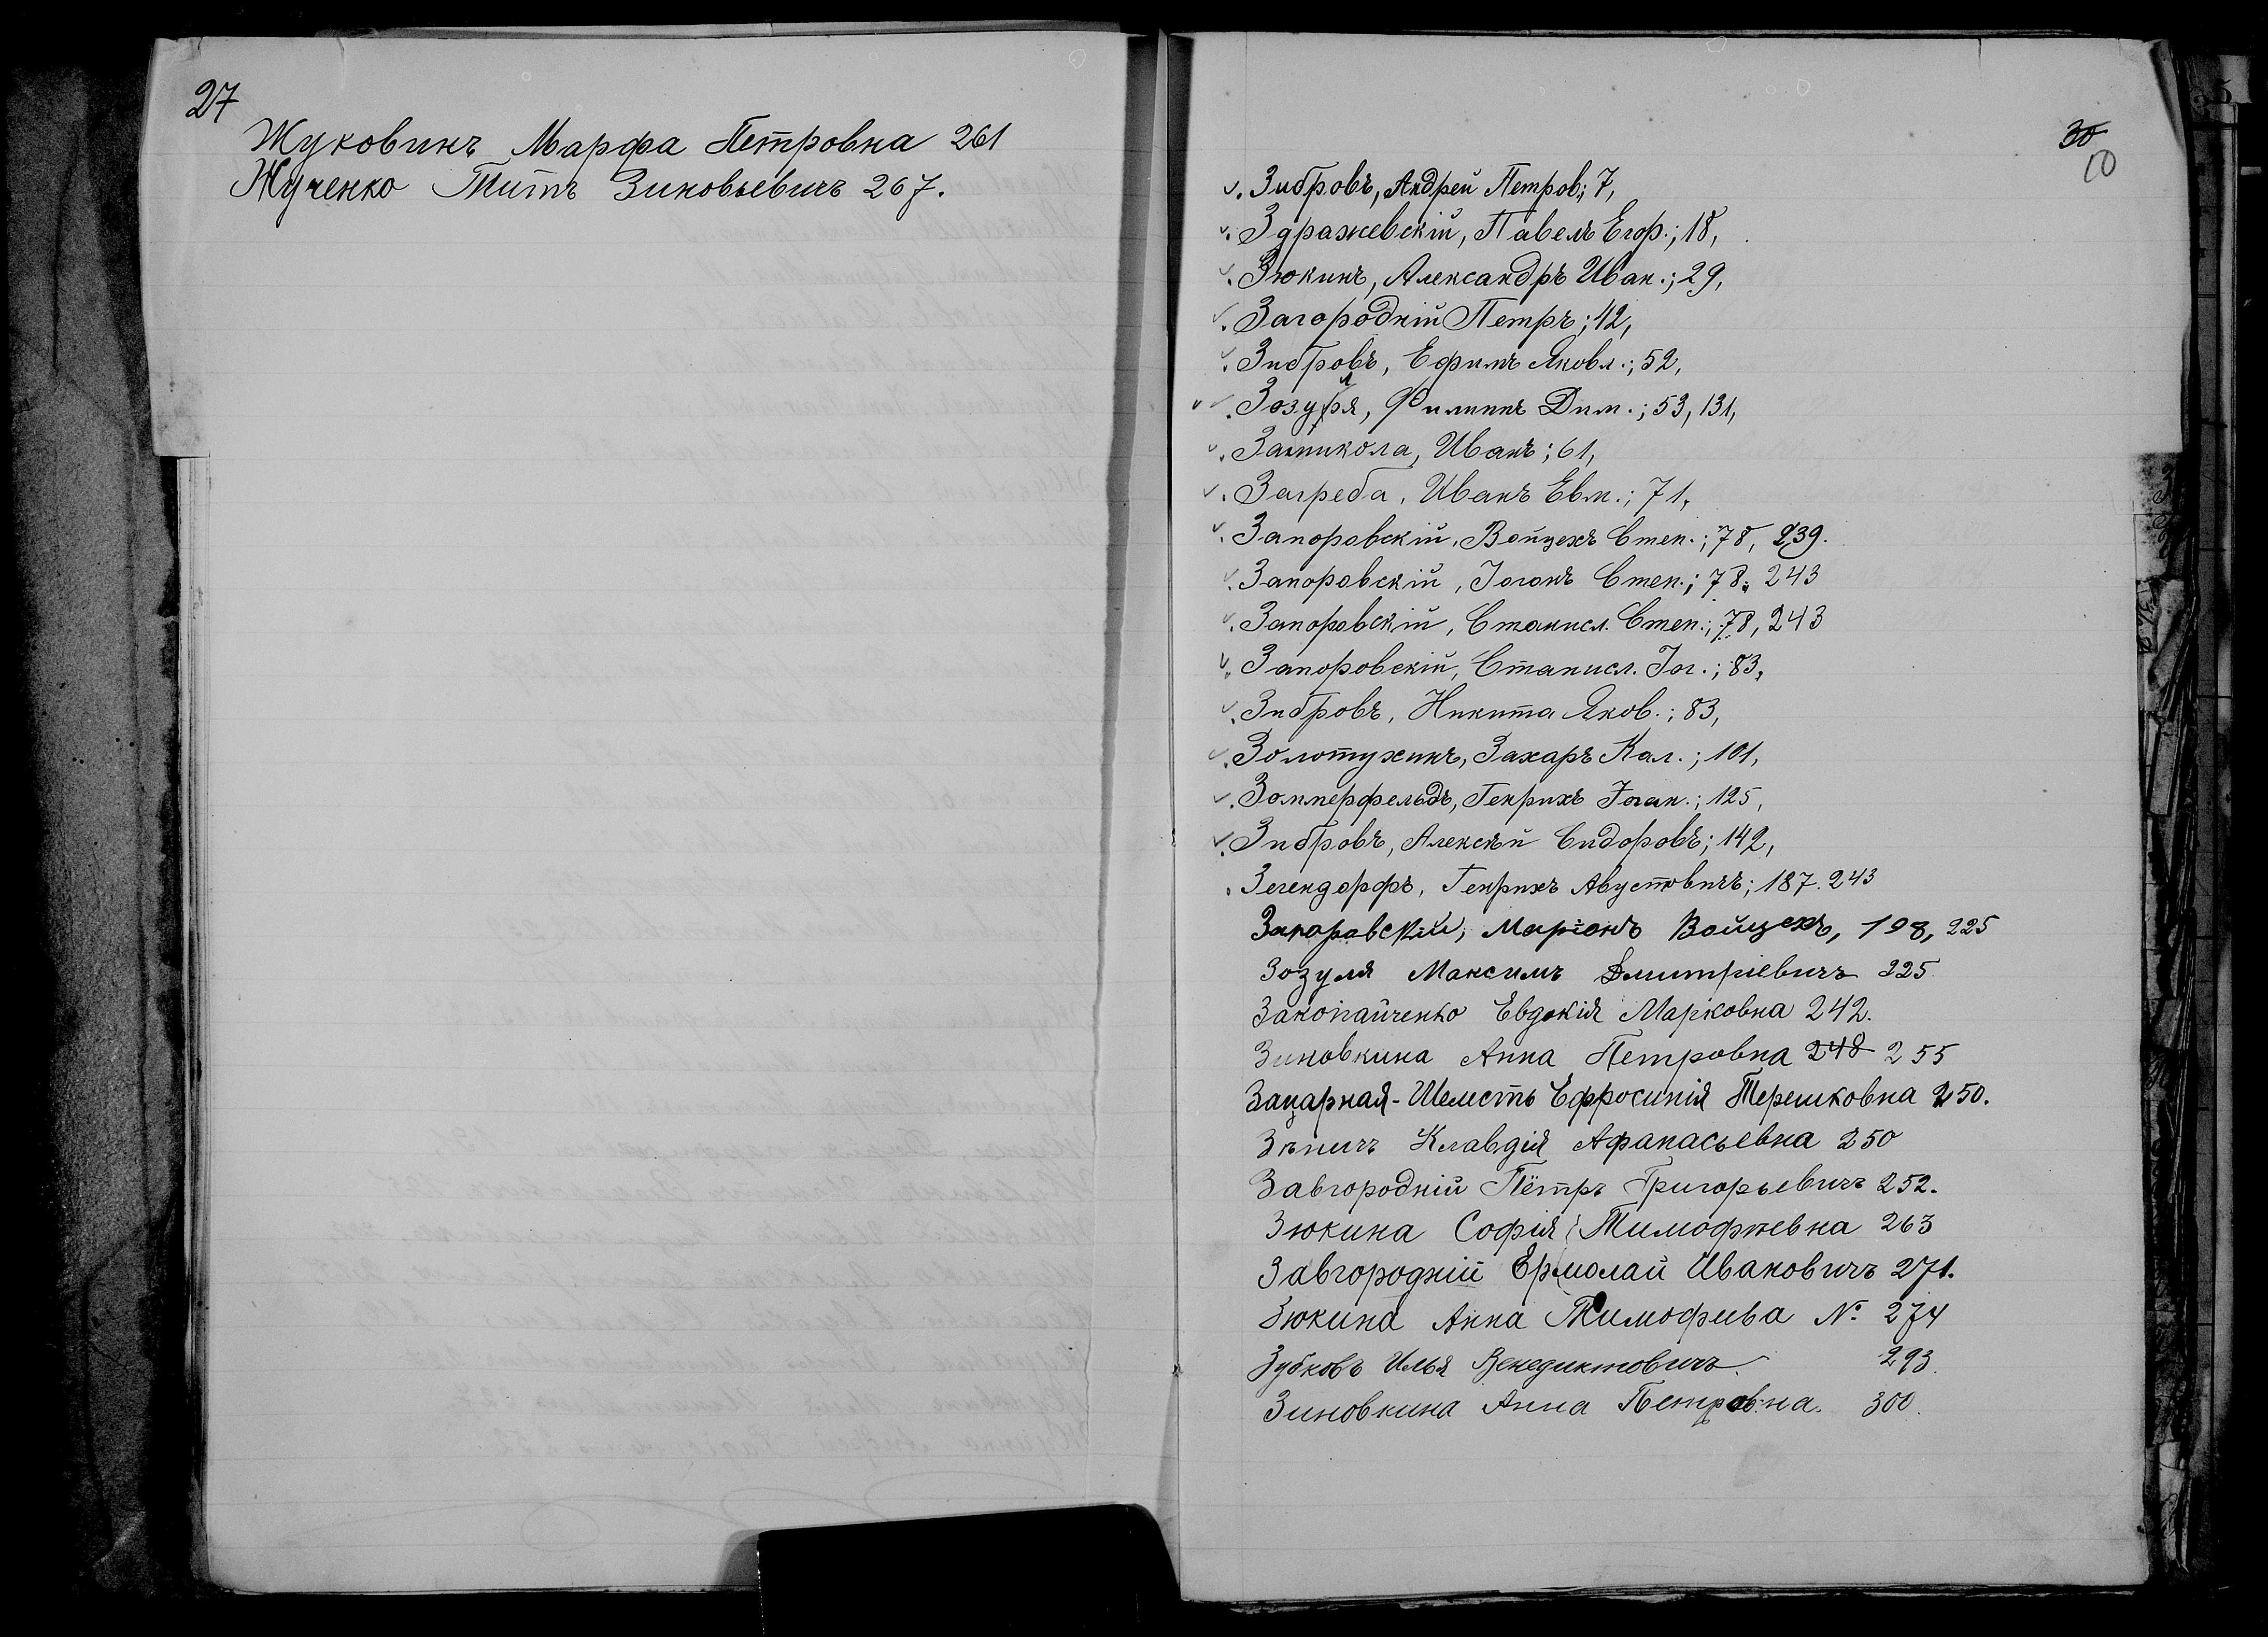 27
Жуковинъ Марфа Петровна 261
Жученко Титъ Зиновьевичъ 267.
30
10
Зибровъ, Андрей Петров.; 7,
Здражевскій, Павелъ Егор.; 18,
Зюкинъ, Александръ Иван.; 29,
Загородній Петръ; 42,
Зибровъ, Ефимъ Яковл.; 52,
Зозуля, Филиппъ Дим.; 53, 131,
Занникола, Иванъ; 61,
Загреба, Иванъ Евт.; 71,
Запоровскій, Войцехъ Степ.; 78, 239.
Запоровскій, Іоганъ Степ.; 78, 243
Запоровскій, Станисл. Степ.; 78, 243
Запоровскій, Станисл. Іог.; 83,
Зибровъ, Никита Яков.; 83,
Золотухинъ, Захаръ Кал.; 101,
Зоммерфельдъ, Генрихъ Іоган.; 125,
Зибровъ, Алексѣй Сидоровъ; 142,
Зегендорфъ, Генрихъ Августовичъ; 187. 243
Запоровскій, Маріонъ Войцехъ, 198, 225
Зозуля Максимъ Дмитріевичъ 225.
Закопайченко Евдокія Марковна 242.
Зиновкина Анна Петровна 248 255
Зацарная-Шелесть Ефросинія Терешковна 250.
Зѣничъ Клавдія Афанасьевна 250
Завгородній Пётръ Григорьевичъ 252.
Зюкина Софія Тимофѣевна 263
Завгородній Ермолай Ивановичъ 271.
Зюкина Анна Тимофиева № 274
Зубковъ Илья Венедиктовичъ. 293.
Зиновкина Анна Петровна. 300.